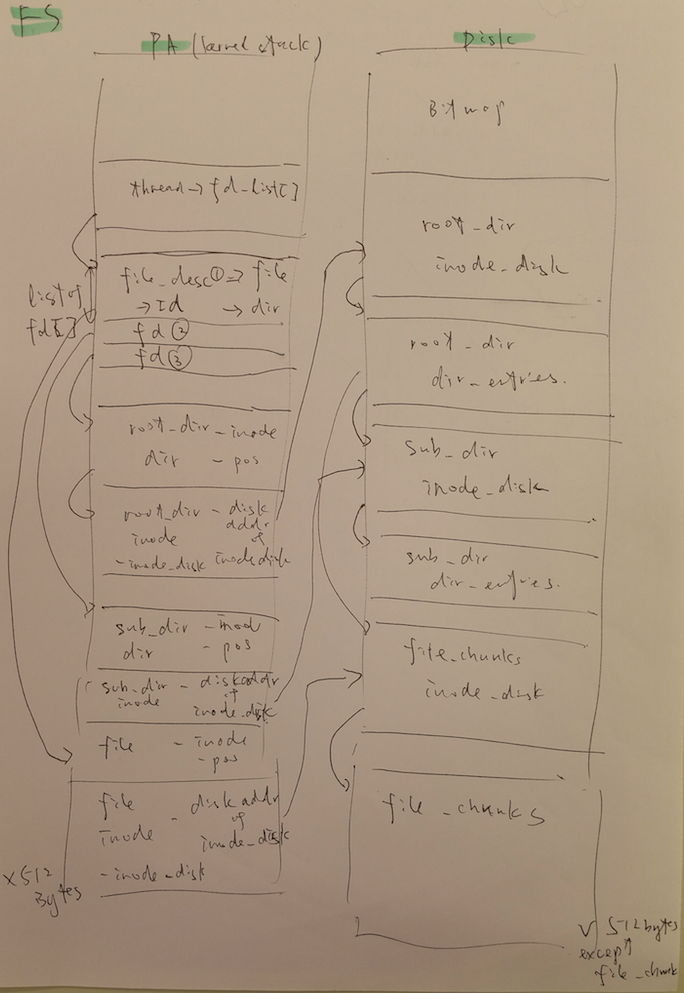 FS
PA (kernel stack)
thread → fd_list[]
list of
fd[]
file_desc① ⇒ file
→ Id → dir
fd ②
fd ③
root_dir - inode
dir - pos
root_dir - disk
addr
inode of
- inode_disk inode disk
sub_dir - inod
dir - pos
sub_dir - diskaddr
inode of
inode_disk
file - inode
- pos
file - diskaddr
of
inode inode_disk
- inode_disk
X 512
Bytes
Disk
Bitmap
root_dir
inode_disk
root_dir
dir_entries.
sub_dir
inode_disk
sub_dir
dir_entries.
file_chunks
inode_disk
file_chunks
V 512bytes
except
file_chunk